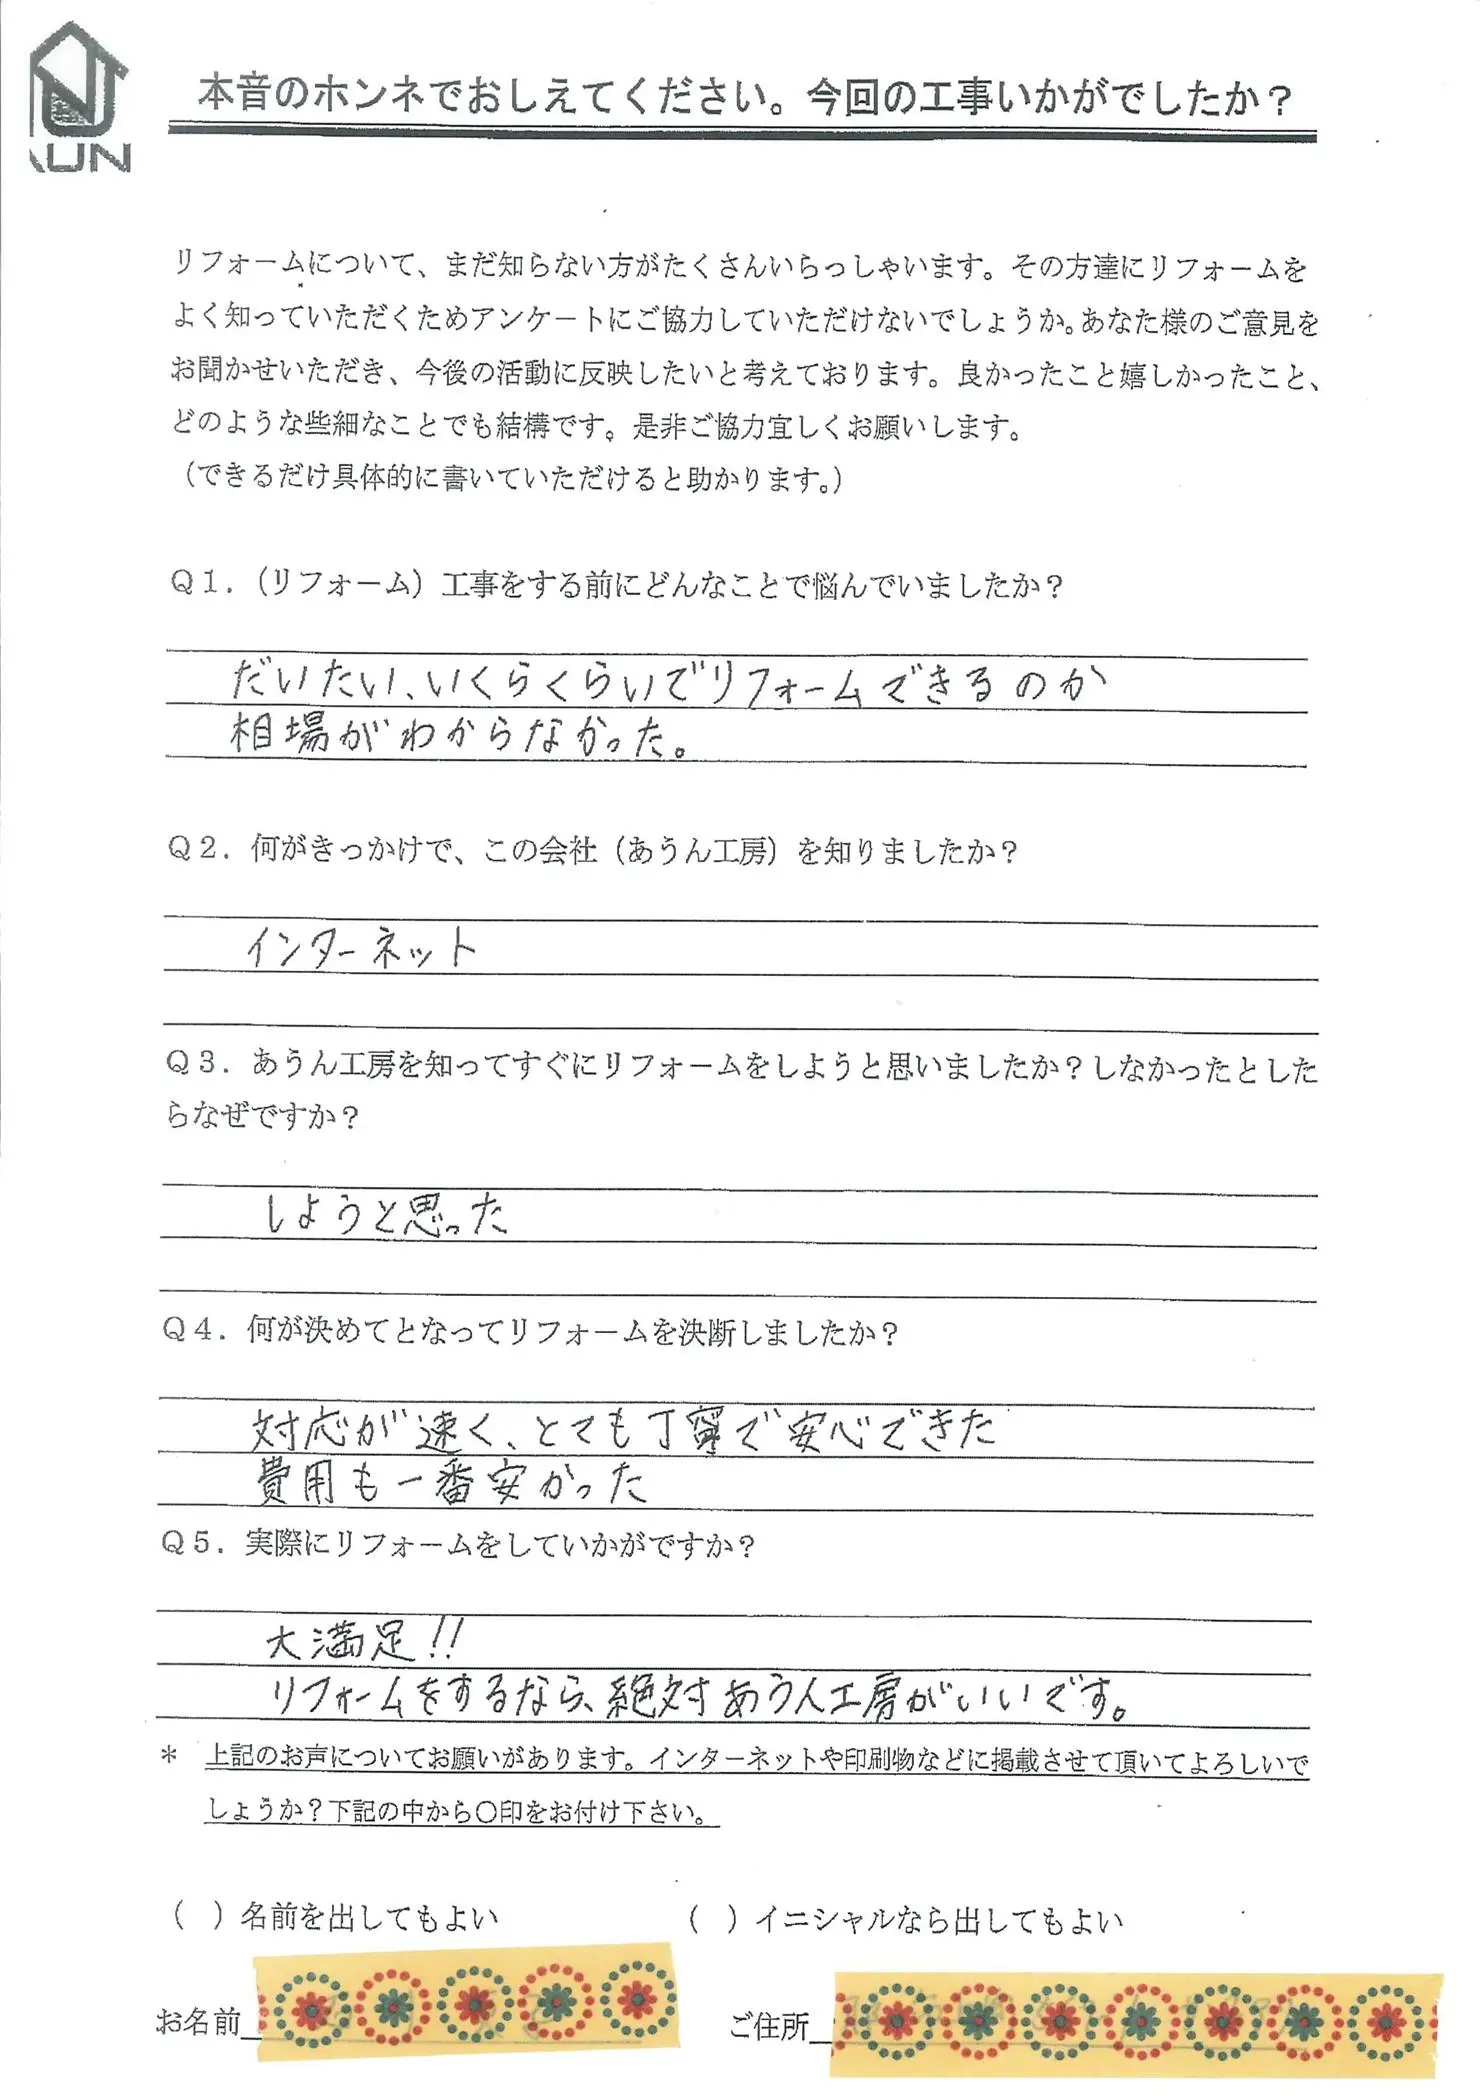 本音のホンネでおしえてください。今回の工事いかがでしたか？
UN
リフォームについて、まだ知らない方がたくさんいらっしゃいます。その方達にリフォームを
よく知っていただくためアンケートにご協力していただけないでしょうか。あなた様のご意見を
お聞かせいただき、今後の活動に反映したいと考えております。良かったこと嬉しかったこと、
どのような些細なことでも結構です。是非ご協力宜しくお願いします。
（できるだけ具体的に書いていただけると助かります。）
Ｑ１．（リフォーム）工事をする前にどんなことで悩んでいましたか？
だいたい、いくらくらいでリフォームできるのか
相場がわからなかった。
Ｑ２．何がきっかけで、この会社（あうん工房）を知りましたか？
インターネット
Ｑ３．あうん工房を知ってすぐにリフォームをしようと思いましたか？しなかったとした
らなぜですか？
しようと思った
Ｑ４．何が決めてとなってリフォームを決断しましたか？
対応が速く、とても丁寧で安心できた
費用も一番安かった
Ｑ５．実際にリフォームをしていかがですか？
大満足!!
リフォームをするなら、絶対あうん工房がいいです。
＊ 上記のお声についてお願いがあります。インターネットや印刷物などに掲載させて頂いてよろしいで
しょうか？下記の中から〇印をお付け下さい。
（ ）名前を出してもよい （ ）イニシャルなら出してもよい
お名前 ご住所